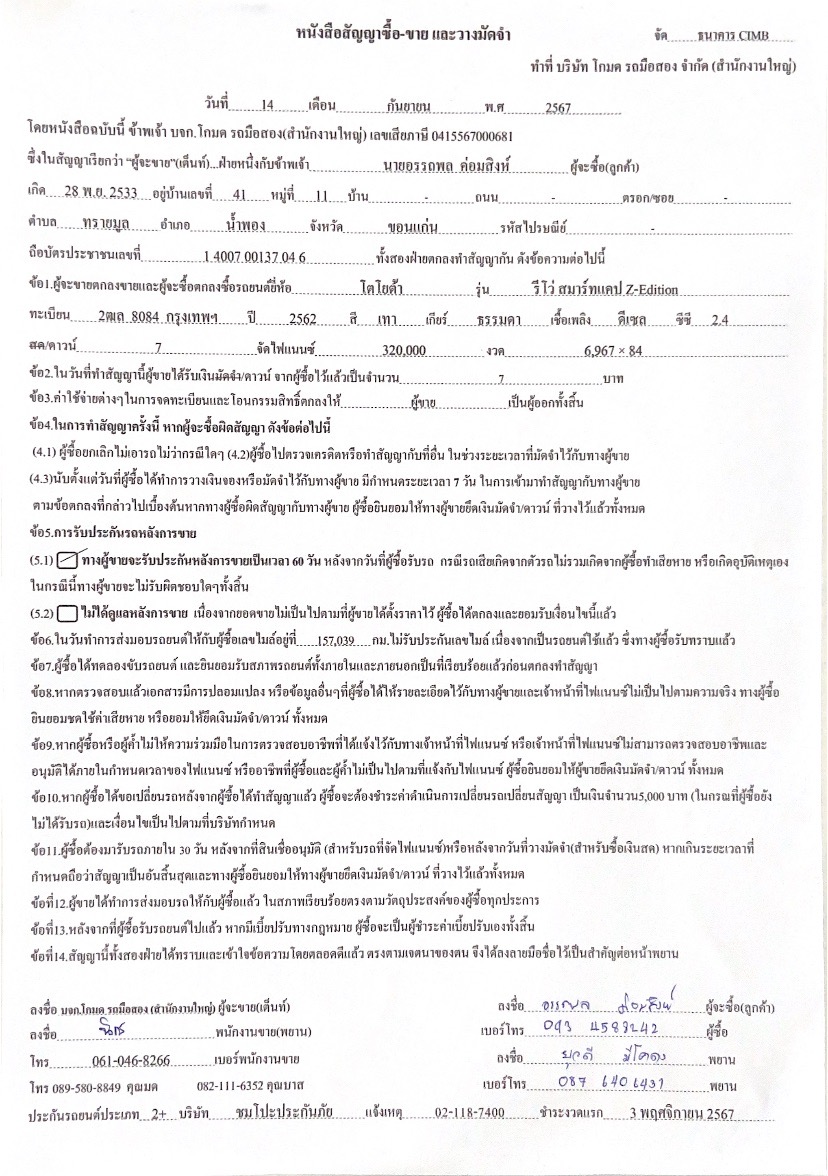 หนังสือสัญญาซื้อ-ขาย และวางมัดจำ จัด ธนาคาร CIMB
ทำที่ บริษัท โกมด รถมือสอง จำกัด (สำนักงานใหญ่)
วันที่ 14 เดือน กันยายน พ.ศ 2567
โดยหนังสือฉบับนี้ ข้าพเจ้า บจก.โกมด รถมือสอง(สำนักงานใหญ่) เลขเสียภาษี 0415567000681
ซึ่งในสัญญาเรียกว่า "ผู้จะขาย"(เต็นท์)...ฝ่ายหนึ่งกับข้าพเจ้า นายอรรถพล ค่อมสิงห์ ผู้จะซื้อ(ลูกค้า)
เกิด 28 พ.ย. 2533 อยู่บ้านเลขที่ 41 หมู่ที่ 11 บ้าน - ถนน - ตรอก/ซอย -
ตำบล ทรายมูล อำเภอ น้ำพอง จังหวัด ขอนแก่น รหัสไปรษณีย์ -
ถือบัตรประชาชนเลขที่ 1 4007 00137 04 6 ทั้งสองฝ่ายตกลงทำสัญญากัน ดังข้อความต่อไปนี้
ข้อ1.ผู้จะขายตกลงขายและผู้จะซื้อตกลงซื้อรถยนต์ยี่ห้อ โตโยต้า รุ่น รีโว่ สมาร์ทแคป Z-Edition
ทะเบียน 2ฒล 8084 กรุงเทพฯ ปี 2562 สี เทา เกียร์ ธรรมดา เชื้อเพลิง ดีเซล ซีซี 2.4
สด/ดาวน์ 7 จัดไฟแนนซ์ 320,000 งวด 6,967 × 84
ข้อ2.ในวันที่ทำสัญญานี้ผู้ขายได้รับเงินมัดจำ/ดาวน์ จากผู้ซื้อไว้แล้วเป็นจำนวน 7 บาท
ข้อ3.ค่าใช้จ่ายต่างๆในการจดทะเบียนและโอนกรรมสิทธิ์ตกลงให้ ผู้ขาย เป็นผู้ออกทั้งสิ้น
ข้อ4.ในการทำสัญญาครั้งนี้ หากผู้จะซื้อผิดสัญญา ดังข้อต่อไปนี้
(4.1) ผู้ซื้อยกเลิกไม่เอารถไม่ว่ากรณีใดๆ (4.2)ผู้ซื้อไปตรวจเครดิตหรือทำสัญญากับที่อื่น ในช่วงระยะเวลาที่มัดจำไว้กับทางผู้ขาย
(4.3)นับตั้งแต่วันที่ผู้ซื้อได้ทำการวางเงินจองหรือมัดจำไว้กับทางผู้ขาย มีกำหนดระยะเวลา 7 วัน ในการเข้ามาทำสัญญากับทางผู้ขาย
ตามข้อตกลงที่กล่าวไปเบื้องต้นหากทางผู้ซื้อผิดสัญญากับทางผู้ขาย ผู้ซื้อยินยอมให้ทางผู้ขายยึดเงินมัดจำ/ดาวน์ ที่วางไว้แล้วทั้งหมด
ข้อ5.การรับประกันรถหลังการขาย
(5.1) ทางผู้ขายจะรับประกันหลังการขายเป็นเวลา 60 วัน หลังจากวันที่ผู้ซื้อรับรถ กรณีรถเสียเกิดจากตัวรถไม่รวมเกิดจากผู้ซื้อทำเสียหาย หรือเกิดอุบัติเหตุเอง
ในกรณีนี้ทางผู้ขายจะไม่รับผิดชอบใดๆทั้งสิ้น
(5.2) ไม่ได้ดูแลหลังการขาย เนื่องจากยอดขายไม่เป็นไปตามที่ผู้ขายได้ตั้งราคาไว้ ผู้ซื้อได้ตกลงและยอมรับเงื่อนไขนี้แล้ว
ข้อ6.ในวันทำการส่งมอบรถยนต์ให้กับผู้ซื้อเลขไมล์อยู่ที่ 157,039 กม.ไม่รับประกันเลขไมล์ เนื่องจากเป็นรถยนต์ใช้แล้ว ซึ่งทางผู้ซื้อรับทราบแล้ว
ข้อ7.ผู้ซื้อได้ทดลองขับรถยนต์ และยินยอมรับสภาพรถยนต์ทั้งภายในและภายนอกเป็นที่เรียบร้อยแล้วก่อนตกลงทำสัญญา
ข้อ8.หากตรวจสอบแล้วเอกสารมีการปลอมแปลง หรือข้อมูลอื่นๆที่ผู้ซื้อได้ให้รายละเอียดไว้กับทางผู้ขายและเจ้าหน้าที่ไฟแนนซ์ไม่เป็นไปตามความจริง ทางผู้ซื้อ
ยินยอมชดใช้ค่าเสียหาย หรือยอมให้ยึดเงินมัดจำ/ดาวน์ ทั้งหมด
ข้อ9.หากผู้ซื้อหรือผู้ค้ำไม่ให้ความร่วมมือในการตรวจสอบอาชีพที่ได้แจ้งไว้กับทางเจ้าหน้าที่ไฟแนนซ์ หรือเจ้าหน้าที่ไฟแนนซ์ไม่สามารถตรวจสอบอาชีพและ
อนุมัติได้ภายในกำหนดเวลาของไฟแนนซ์ หรืออาชีพที่ผู้ซื้อและผู้ค้ำไม่เป็นไปตามที่แจ้งกับไฟแนนซ์ ผู้ซื้อยินยอมให้ผู้ขายยึดเงินมัดจำ/ดาวน์ ทั้งหมด
ข้อ10.หากผู้ซื้อได้ขอเปลี่ยนรถหลังจากผู้ซื้อได้ทำสัญญาแล้ว ผู้ซื้อจะต้องชำระค่าดำเนินการเปลี่ยนรถเปลี่ยนสัญญา เป็นเงินจำนวน5,000 บาท (ในกรณที่ผู้ซื้อยัง
ไม่ได้รับรถ)และเงื่อนไขเป็นไปตามที่บริษัทกำหนด
ข้อ11.ผู้ซื้อต้องมารับรถภายใน 30 วัน หลังจากที่สินเชื่ออนุมัติ (สำหรับรถที่จัดไฟแนนซ์)หรือหลังจากวันที่วางมัดจำ(สำหรับซื้อเงินสด) หากเกินระยะเวลาที่
กำหนดถือว่าสัญญาเป็นอันสิ้นสุดและทางผู้ซื้อยินยอมให้ทางผู้ขายยึดเงินมัดจำ/ดาวน์ ที่วางไว้แล้วทั้งหมด
ข้อที่12.ผู้ขายได้ทำการส่งมอบรถให้กับผู้ซื้อแล้ว ในสภาพเรียบร้อยตรงตามวัตถุประสงค์ของผู้ซื้อทุกประการ
ข้อที่13.หลังจากที่ผู้ซื้อรับรถยนต์ไปแล้ว หากมีเบี้ยปรับทางกฎหมาย ผู้ซื้อจะเป็นผู้ชำระค่าเบี้ยปรับเองทั้งสิ้น
ข้อที่14.สัญญานี้ทั้งสองฝ่ายได้ทราบและเข้าใจข้อความโดยตลอดดีแล้ว ตรงตามเจตนาของตน จึงได้ลงลายมือชื่อไว้เป็นสำคัญต่อหน้าพยาน
ลงชื่อ บจก.โกมด รถมือสอง (สำนักงานใหญ่) ผู้จะขาย(เต็นท์) ลงชื่อ อรรถพล ค่อมสิงห์ ผู้จะซื้อ(ลูกค้า)
ลงชื่อ พนักงานขาย(พยาน) เบอร์โทร 093 4583242 ผู้ซื้อ
โทร 061-046-8266 เบอร์พนักงานขาย ลงชื่อ ยุวดี มีโคตร พยาน
โทร 089-580-8849 คุณมด 082-111-6352 คุณบาส เบอร์โทร 087 6406431 พยาน
ประกันรถยนต์ประเภท 2+ บริษัท ชมโปะประกันภัย แจ้งเหตุ 02-118-7400 ชำระงวดแรก 3 พฤศจิกายน 2567